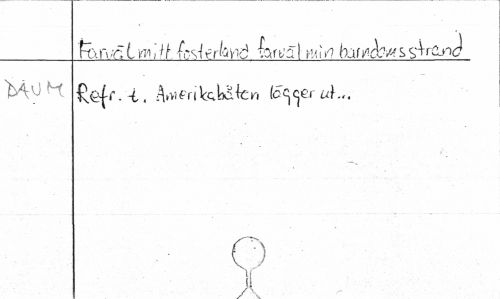 Farväl mitt fosterland, farväl min barndomsstrand
DAUM
Refr. t. Amerikabåten lägger ut...